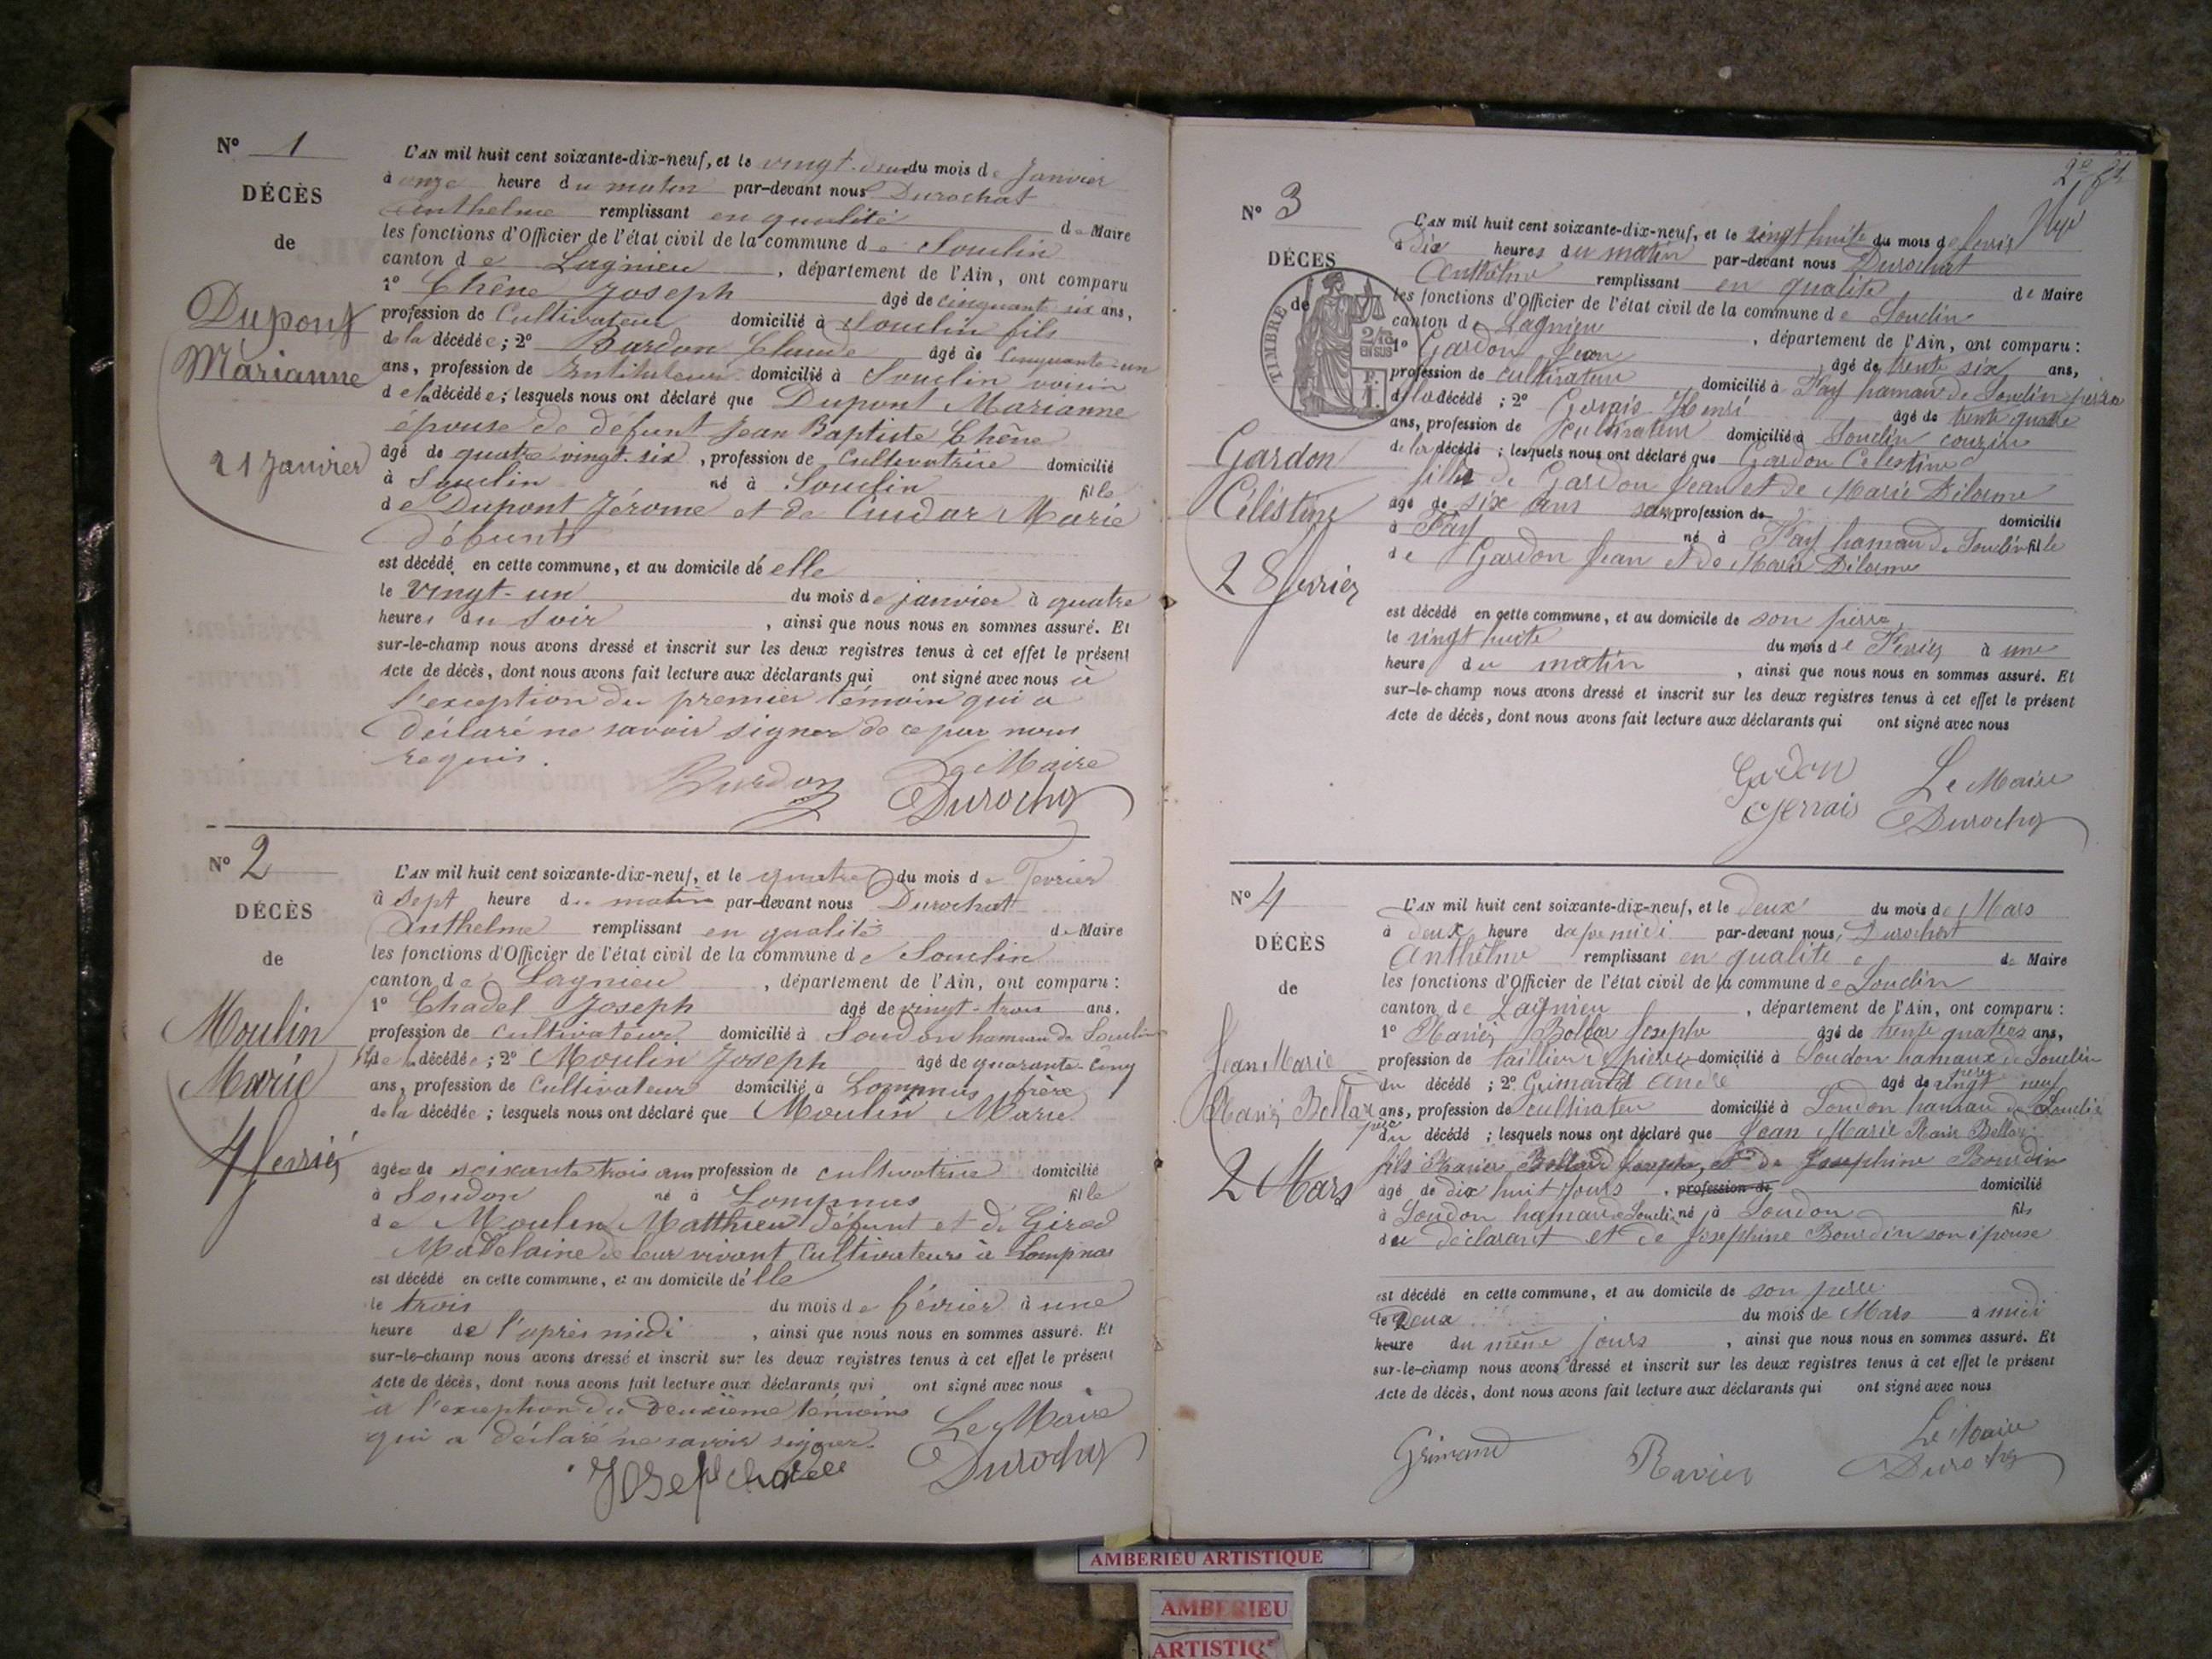 N° 1
DÉCÈS
de
Dupont
Marianne
21 Janvier
L'AN mil huit cent soixante-dix-neuf, et le vingt-deux du mois de Janvier
à onze heure du matin par-devant nous Durochat
Anthelme remplissant en qualité de Maire
les fonctions d'Officier de l'état civil de la commune de Souclin
canton de Lagnieu, département de l'Ain, ont comparu
1° Chêne Joseph âgé de cinquant six ans,
profession de Cultivateur domicilié à Souclin fils
de la décédée; 2° Burdon Claude âgé de cinquante-un
ans, profession de Instituteur domicilié à Souclin voisin
de la décédée; lesquels nous ont déclaré que Dupont Marianne
épouse de défunt Jean Baptiste Chêne
âgé de quatre-vingt-six, profession de Cultivatrice domicilié
à Souclin né à Souclin fille
de Dupont Jérome et de Marie
défunts
est décédé en cette commune, et au domicile d'elle
le vingt-un du mois de janvier à quatre
heures du soir, ainsi que nous nous en sommes assuré. Et
sur-le-champ nous avons dressé et inscrit sur les deux registres tenus à cet effet le présent
Acte de décès, dont nous avons fait lecture aux déclarants qui ont signé avec nous à
l'exception du premier témoin qui a
déclaré ne savoir signer de ce par nous
requis.
Burdon Le Maire
Durochat
N° 2
DÉCÈS
de
Moulin
Marie
4 fevrier
L'AN mil huit cent soixante-dix-neuf, et le quatre du mois de Fevrier
à sept heure du matin par-devant nous Durochat
Anthelme remplissant en qualité de Maire
les fonctions d'Officier de l'état civil de la commune de Souclin
canton de Lagnieu, département de l'Ain, ont comparu :
1° Chadel Joseph âgé de vingt-trois ans.
profession de Cultivateur domicilié à Soudon hameau de Souclin
fils de la décédée; 2° Moulin Joseph âgé de quarante-cinq
ans, profession de Cultivateur domicilié à Lompnas frère
de la décédée; lesquels nous ont déclaré que Moulin Marie
âgée de soixante trois ans profession de cultivatrice domicilié
à Soudon né à Lompnas fille
de Moulin Matthieu défunt et de Girod
Madelaine de leur vivant Cultivateurs à Lompnas
est décédé en cette commune, et au domicile d'elle
le trois du mois de février à une
heure de l'après midi, ainsi que nous nous en sommes assuré. Et
sur-le-champ nous avons dressé et inscrit sur les deux registres tenus à cet effet le présent
Acte de décès, dont nous avons fait lecture aux déclarants qui ont signé avec nous
à l'exception du deuxième témoins
qui a déclaré ne savoir signer.
Le Maire
Joseph Chadel Durochat
N° 3
DÉCÈS
de
TIMBRE
2/10
EN SUS
Gardon
Célestine
28 fevrier
L'AN mil huit cent soixante-dix-neuf, et le vingt huite du mois de fevrier
à Dix heures du matin par-devant nous Durochat
Anthelme remplissant en qualité de Maire
les fonctions d'Officier de l'état civil de la commune de Souclin
canton de Lagnieu, département de l'Ain, ont comparu :
1° Gardon Jean, âgé de trente six ans,
profession de cultivateur domicilié à Fay hamau de Souclin
de la décédé; 2° Gervais Henri âgé de trente quatre
ans, profession de cultivateur domicilié à Souclin couzin
de la décédé; lesquels nous ont déclaré que Gardon Célestine
fille de Gardon Jean et de Marie Délorme
âgé de six ans sans profession de domicilié
à Fay né à Fay hamau de Souclin fille
de Gardon Jean et de Marie Délorme
est décédé en cette commune, et au domicile de son pierre
le vingt huite du mois de Fevrier à une
heure du matin, ainsi que nous nous en sommes assuré. Et
sur-le-champ nous avons dressé et inscrit sur les deux registres tenus à cet effet le présent
Acte de décès, dont nous avons fait lecture aux déclarants qui ont signé avec nous
Gardon Le Maire
Gervais Durochat
N° 4
DÉCÈS
de
Jean Marie
Ravier Bollar
2 Mars
L'AN mil huit cent soixante-dix-neuf, et le deux du mois de Mars
à deux heure par-devant nous Durochat
Anthelme remplissant en qualité de Maire
les fonctions d'Officier de l'état civil de la commune de Souclin
canton de Lagnieu, département de l'Ain, ont comparu :
1° Ravier Bollar Josephe âgé de trente quatres ans,
profession de tailleur pierre domicilié à Soudon hamaux de Souclin
du décédé; 2° Grimand André âgé de vingt neuf
ans, profession de cultivateu domicilié à Soudon hamau de Souclin
du décédé; lesquels nous ont déclaré que Jean Marie Ravier Bellar
fils Ravier Bollard Joseph, et de Josephine Bourdin
âgé de dix huit jours, profession de domicilié
à Soudon hamau Souclin né à Soudon fils
du déclarant et de Josephine Bourdin son épouse
est décédé en cette commune, et au domicile de son pierre
le Deux du mois de Mars à midi
heure du même jours, ainsi que nous nous en sommes assuré. Et
sur-le-champ nous avons dressé et inscrit sur les deux registres tenus à cet effet le présent
Acte de décès, dont nous avons fait lecture aux déclarants qui ont signé avec nous
Le Maire
Grimand Ravier Durochat
AMBERIEU ARTISTIQUE
AMBERIEU
ARTISTIQ